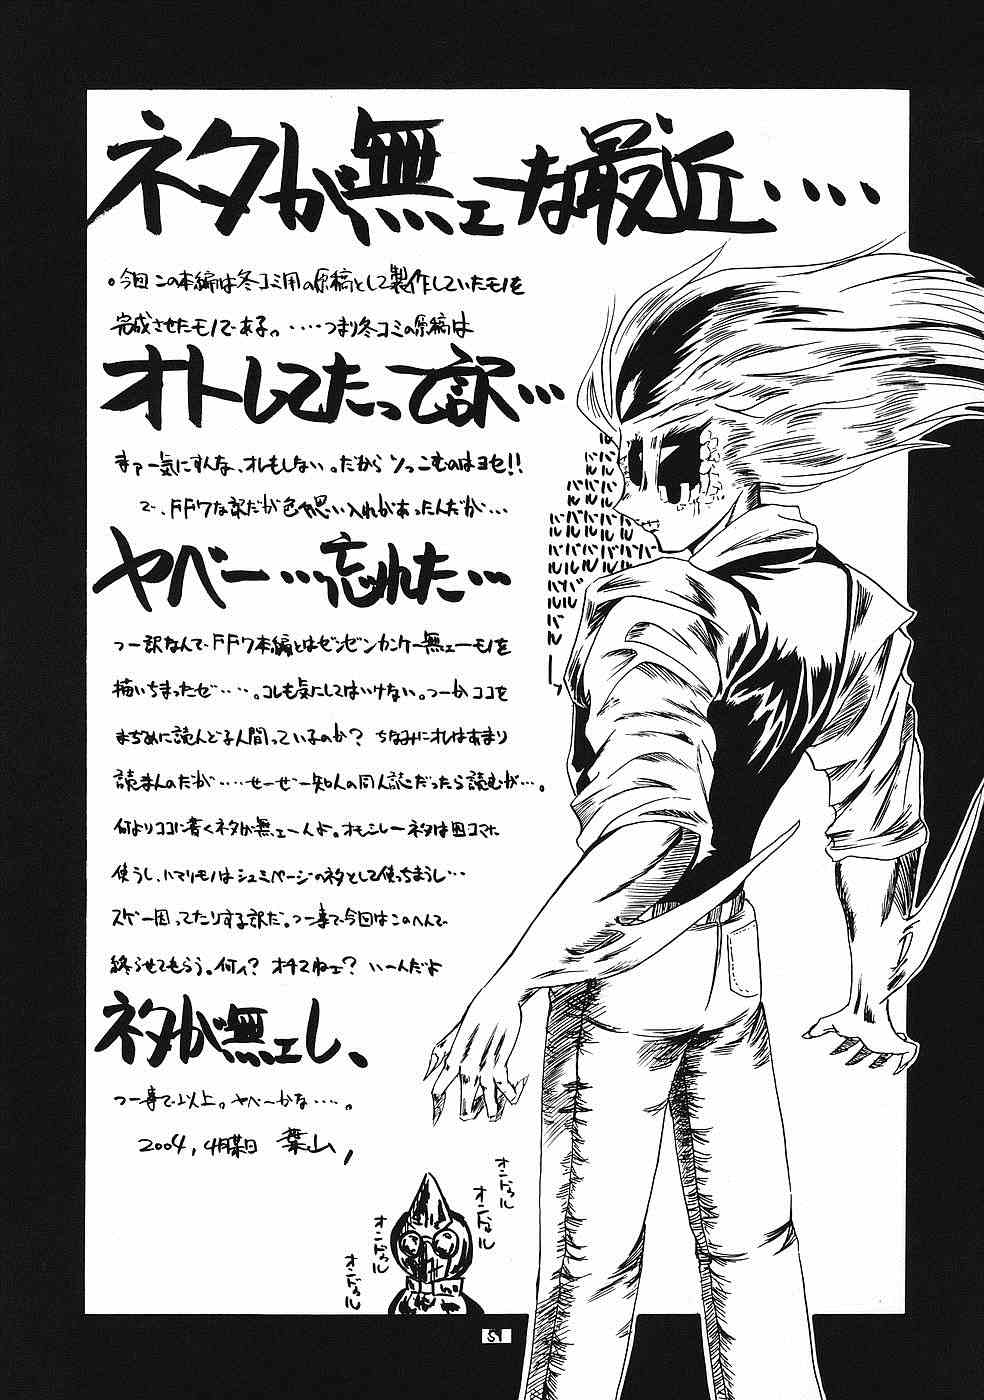 ネタが無ェーな最近・・・・
。今回この本編は冬コミ用の原稿として製作していたモノを
完成させたモノである。・・・・つまり冬コミの原稿は
オトしてたって訳・・・
まァ一気にすんな、オレもしない。だからツっこむのはヨセ!!
で、FF7な訳だが色々思い入れがあったんだが・・・
ヤベー・・・忘れた・・・
つー訳なんで、FF7本編とはゼンゼンカンケー無ェーモノを
描いちまったゼ・・・・。コレも気にしてはいけない。つーかココを
まぢめに読んどる人間っているのか? ちなみにオレはあまり
読まんのだが・・・・・せーぜー知人の同人誌だったら読むが・・・。
何よりココに書くネタが無ェーんよ。オモシレーネタは四コマに
使うし、ハマリモノはシュミページのネタとして使っちまうし・・・
スゲー困ってたりする訳だ。つー事で今回はこのへんで
終らせてもらう。何ィ? オチてねェ? いーんだよ
ネタが無ェし、
つー事で以上。ヤベーかな・・・・。
2004, 4月某日 葉山,
バルバルバル
バルバルバルバル
バルバルバルバル
バルバルバル
バルバル
オンドゥル
オンドゥル
オンドゥル
オンドゥル
51